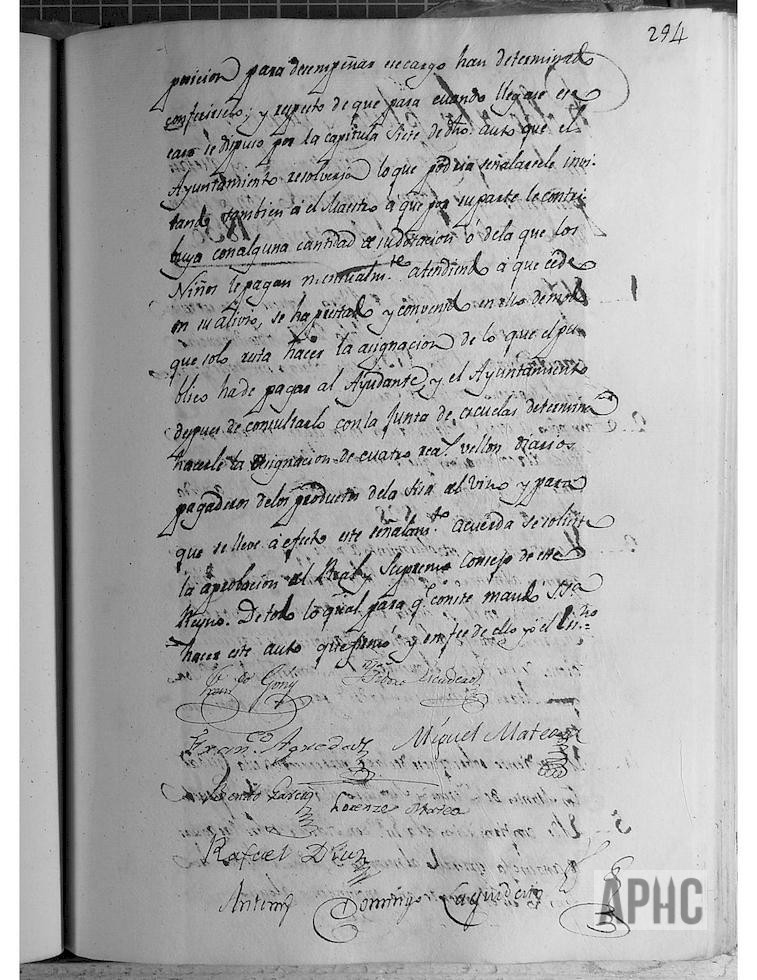 294
posicion para desempeñar ese cargo han determinado
conferirselo; y respeto de que para cuando llegase ese
caso se dispuso por la capitula siete de dho. auto que el
Ayuntamiento resolveria lo que podria señalarsele invi-
tando tambien á el Maestro a que por su parte le contri-
buya con alguna cantidad de su dotacion ó de la que los
Niños le pagan mensualm.te atendiendo a que cede
en su alivio, se ha prestado y convenido en ello de modo
que solo resta hacer la asignacion de lo que el pu-
blico ha de pagar al Ayudante, y el Ayuntamiento
despues de consultarlo con la Junta de escuelas determina
hacerle la designacion de cuatro rea.s vellon diarios
pagaderos de los productos de la sisa del vino y para
que se lleve a efecto este señalam.to acuerda se solicite
la aprobacion del Real y Supremo Consejo de este
Reyno. De todo lo qual para q.e conste mandó SSa
hacer este auto que firmó y en fee de ello yo el
Pedro Escudero
Fran.co Agredat Miguel Mateo
Benito Garcia Lorenzo Mateo
Rafael Diaz
Antonio Domingo
APHC